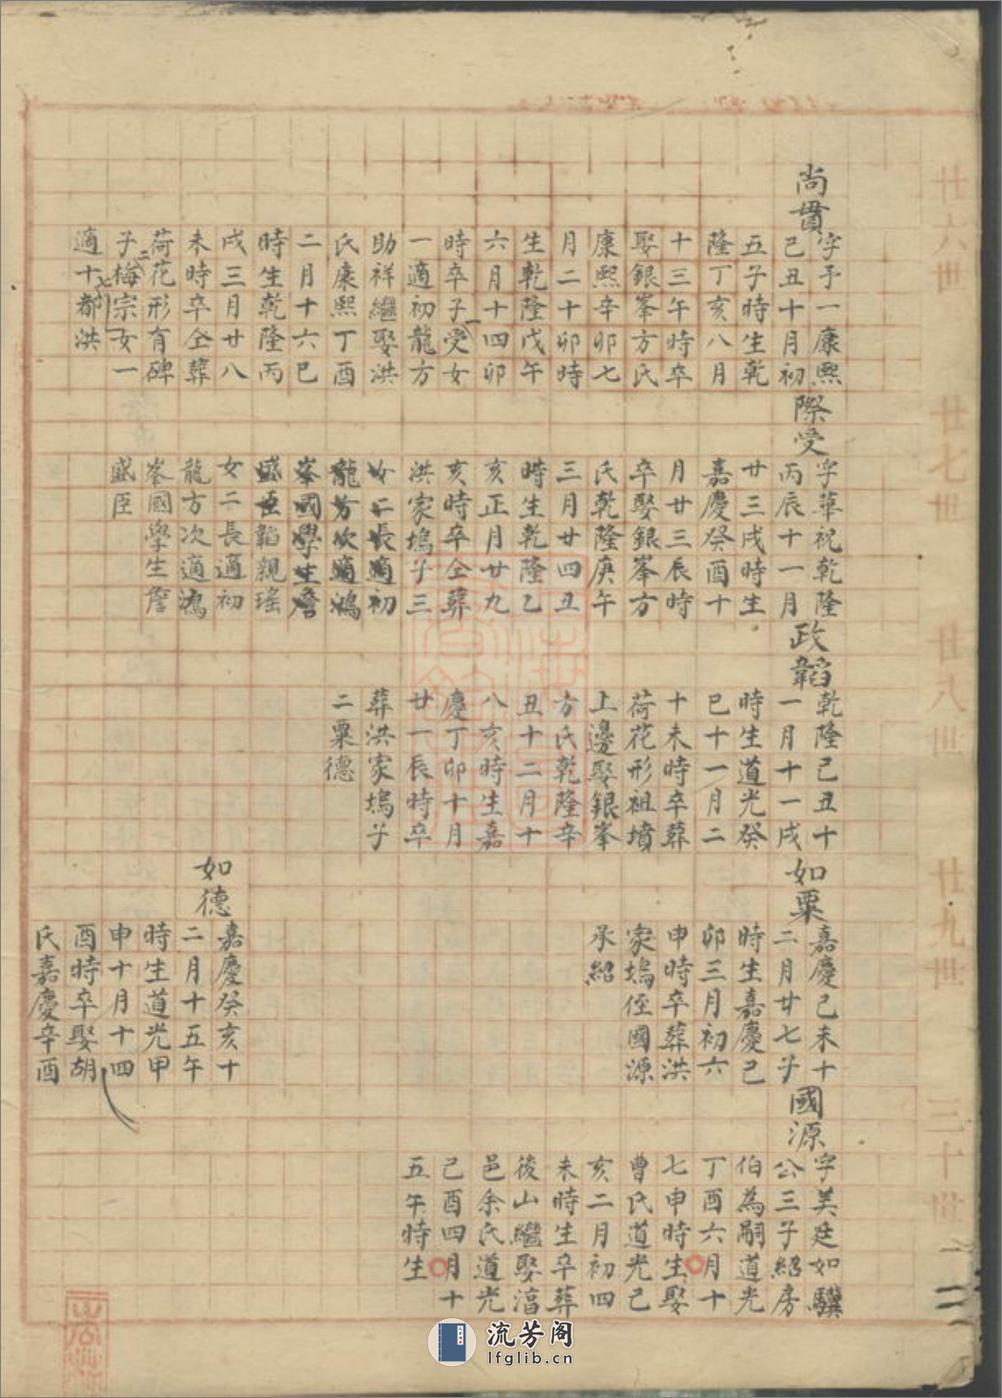 廿六世
廿七世
廿八世
廿九世
三十世
尚貫
字予一康熙
己丑十月初
五子時生乾
隆丁亥八月
十三午時卒
娶銀峯方氏
康熙辛卯七
月二十卯時
生乾隆戊午
六月十四卯
時卒子一受女
一適初龍方
助祥繼娶洪
氏康熙丁酉
二月十六巳
時生乾隆丙
戌三月廿八
未時卒仝葬
荷花形有碑
子二梅宗女一
適十都洪
際受
字華祝乾隆
丙辰十一月
廿三戌時生
嘉慶癸酉十
月廿三辰時
卒娶銀峯方
氏乾隆庚午
三月廿四丑
時生乾隆乙
亥正月廿九
亥時卒仝葬
洪家塢子三
女二長適初
龍方次適鴻
峯國學生詹
盛臣韜親瑤
女二長適初
龍方次適鴻
峯國學生詹
盛臣
政韜
乾隆己丑十
一月十一戌
時生道光癸
巳十一月二
十未時卒葬
荷花形祖墳
上邊娶銀峯
方氏乾隆辛
丑十二月十
八亥時生嘉
慶丁卯十月
廿一辰時卒
葬洪家塢子
二粟德
如粟
嘉慶己未十
二月廿七子
時生嘉慶己
卯三月初六
申時卒葬洪
家塢侄國源
承紹
如德
嘉慶癸亥十
二月十五午
時生道光甲
申十月十四
酉時卒娶胡
氏嘉慶辛酉
國源
字美廷如驥
公三子紹房
伯為嗣道光
丁酉六月十
七申時生娶
曹氏道光己
亥二月初四
未時生卒葬
後山繼娶湢
邑余氏道光
己酉四月十
五午時生
流芳阁
lfglib.cn